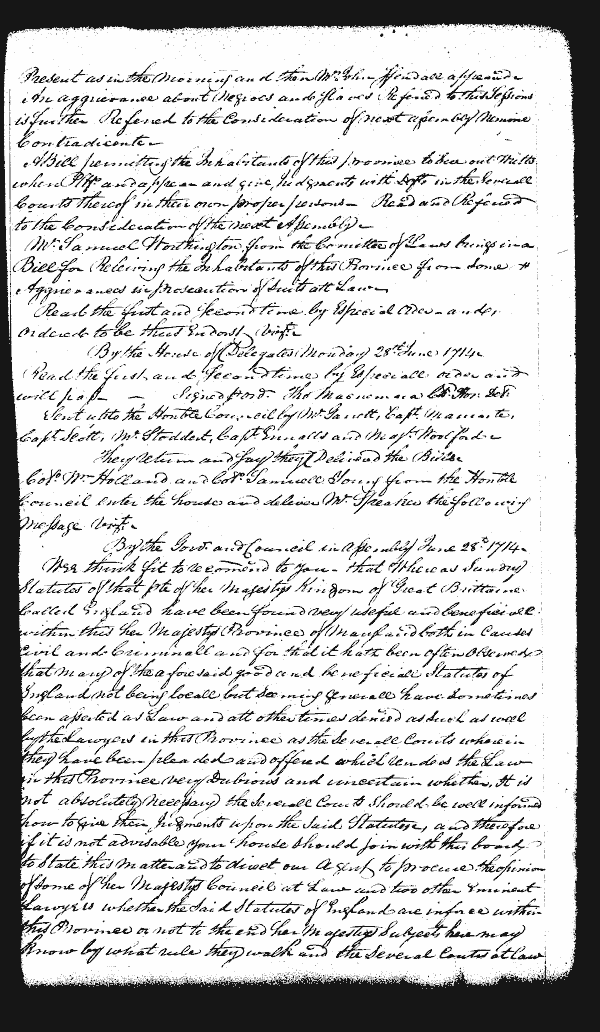 Present as in the Morning and then Mr John ffendall appeared
An aggrievance about Negroes and Slaves Refered to this Sessions
is further Refered to the Consideration of next assembly Nemine
Contradicente
A Bill permitting the Inhabitants of this province to sue out Writts
when Pltfs and appear and give Judgments with Defts in the Severall
Courts thereof in their own proper persons Read and Referred
to the Consideration of the next Assembly
Mr Samuel Worthington from the Comittee of Laws brings in a
Bill for Releiving the Inhabitants of this Province from Some
Aggrievances in prosecution of Suits at Law
Read the first and Second time by Especial Order and
ordered to be thus Endorst vizt
By the House of Delegates Monday 28th June 1714
Read the first and Second time by Especiall order and
will pass Signed p ord. Tho Macnemara Cl. Ho. Del.
Sent up to the Honble Council by Mr Jarrott, Capt
Capt Scott, Mr Stoddert, Capt Ennalls and Majr Woolford
They return and say they Delivered the Bill
Colo Wm Holland and Colo Samuell Young from the Honble
Council enter the house and deliver Mr Speaker the following
Message vizt
By the Govr and Council in Assembly June 28th 1714
Wee think fit to recomend to you that Whereas Sundry
Statutes of that pte of her Majestys Kingdom of Great Brittaine
Called England have been found very usefull and beneficiall
within this her Majestys Province of Maryld and both in Causes
Civil and Criminall and for that it hath been often Observed
that many of the aforesaid good and beneficiall Statutes of
England not being locall but Seeming Generall have sometimes
been asserted as Law and att other times denied as such as well
by the Lawyers in this Province as the Severall Courts wherein
they have been pleaded and offered which renders the Law
in this Province very Dubious and uncertain whether, It is
not absolutely Necessary the Severall Courts Should be well informed
how to give their Judgments upon the Said Statutes, and therefore
if it is not advisable your house Should join with this board
to State this Matter and to direct our Agent to procure the opinion
of Some of her Majestys Council at Law and two other Eminent
Lawyers whether the Said Statutes of England are in force within
this Province or not to the end her Majestys Subjects here may
Know by what rule they walk and the Several Courts at Law